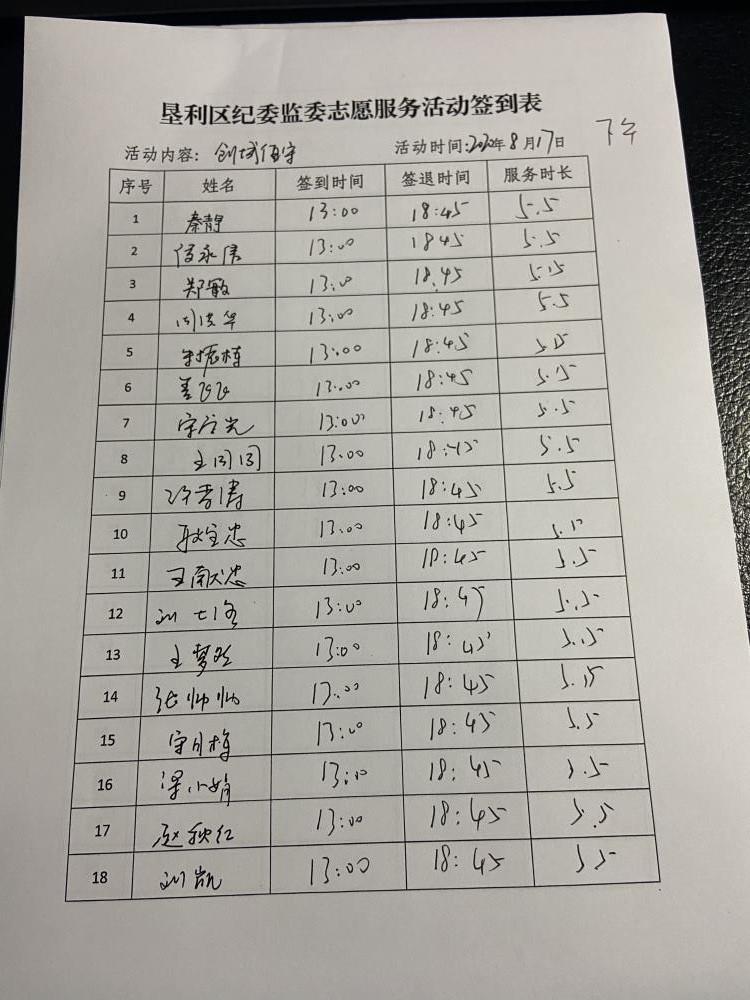 垦利区纪委监委志愿服务活动签到表
下午
活动内容：创城值守 活动时间：2020年8月17日
序号 姓名 签到时间 签退时间 服务时长
1 秦静 13:00 18:45 5.5
2 永伟 13:00 1845 5.5
3 郑敏 13:00 18.45 5.5
4 周洪华 13:00 18:45 5.5
5 振栋 13:00 18:45 5.5
6 姜 13:00 18:45 5.5
7 宋 光 13:00 18:45 5.5
8 王闪闪 13:00 18:45 5.5
9 许晋涛 13:00 18:45 5.5
10 忠 13:00 18:45 5.5
11 王献忠 13:00 18:45 5.5
12 刘 13:00 18:45 5.5
13 王梦 13:00 18:45 5.5
14 张帅帅 13:00 18:45 5.5
15 月梅 13:00 18:45 5.5
16 梁小娟 13:00 18:45 5.5
17 赵秋红 13:00 18:45 5.5
18 刘凯 13:00 18:45 5.5